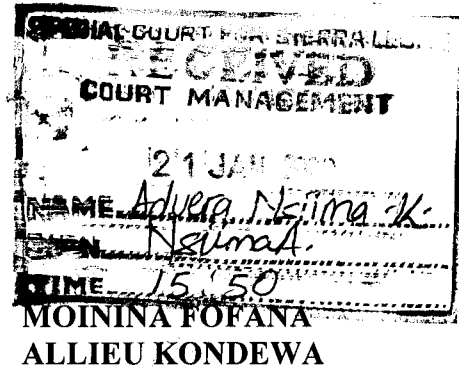 SPECIAL COURT FOR SIERRA LEO
RECEIVED
COURT MANAGEMENT
21 JAN
NAME Advera Nsiima K.
SIGN NsiimaA.
TIME 15:50
MOININA FOFANA
ALLIEU KONDEWA